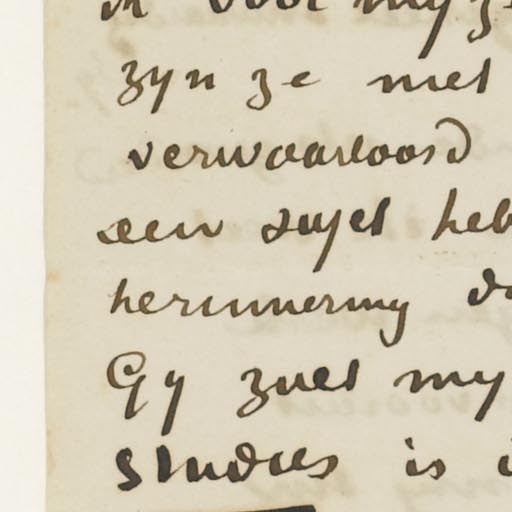 ik voor my z
zyn ze niet
verwaarloosd
een sujet heb
herinnering da
Gy zult my
studies is i